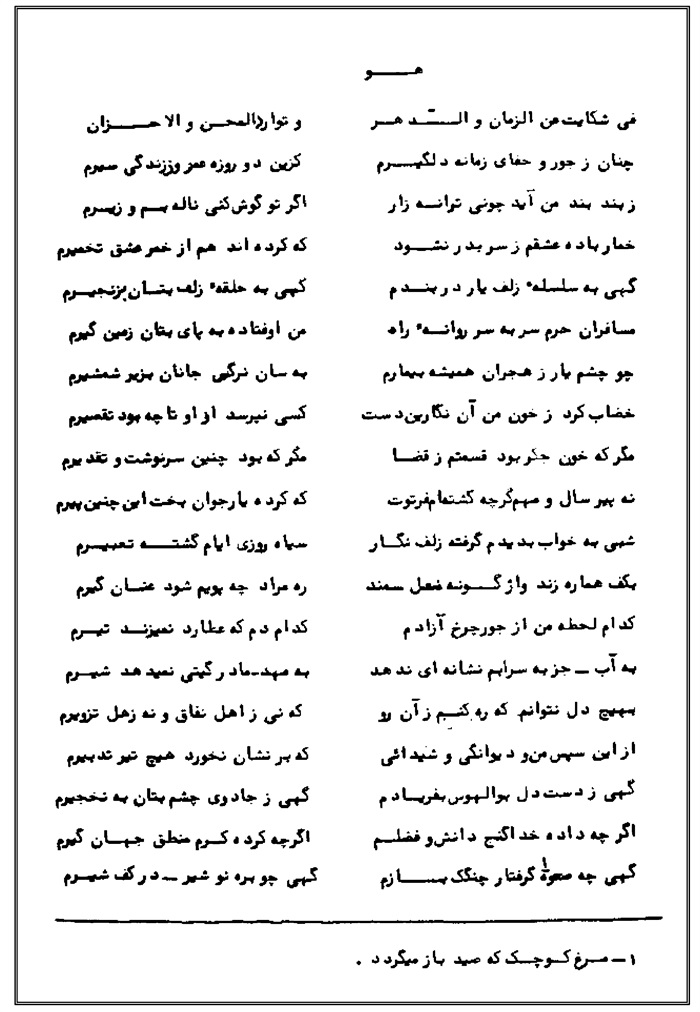 هـــو
فی شکایت من الزمان و الـــدهـر و تواردالمحـن و الاحـــزان
چنان ز جور و جفای زمانه دلگیـــرم کزین دو روزه عمر وززندگی سیرم
زبند بند من آید چونی ترانه زار اگر تو گوش کنی ناله بم و زیرم
خمار باده عشقم ز سر بدر نشـود که کرده اند هم از خمر عشق تخمیرم
گهی به سلسلهٔ زلف یار در بندم گهی به حلقهٔ زلف بتان بزنجیرم
مسافران حرم سر به سر روانهٔ راه من اوفتاده به پای بتان زمین گیرم
چو چشم یار ز هجران همیشه بیمارم به سان نرگس جانان بزیر شمشیرم
خضاب کرد ز خون من آن نگارین دست کسی نپرسد از او تا چه بود تقصیرم
مگر که خون جگر بود قسمتم ز قضا مگر که بود چنین سرنوشت و تقدیرم
نه پیر سال و مهم گرچه گشته‌ام فرتوت که کرده یار جوان بخت این چنین پیرم
شبی به خواب بدیدم گرفته زلف نگار سیاه روزی ایام گشتـــه تعبیـرم
بکف هماره زند واژگـــونه نعل سمند ره مراد چه پویم شود عنـان گیرم
کدام لحظه من از جور چرخ آزادم کدام دم که عطارد نمیزنـد تیـرم
به آب ــ جز به سرابم نشانه ای ندهد به مهد ـ مادر گیتی نمیدهد شیـرم
بهیچ دل نتوانم که ره کنـم ز آن رو که نی ز اهل نفاق و نه زهل تزویرم
از این سپس من و دیوانگی و شیدائی که بر نشان نخورد هیچ تیر تدبیرم
گهی ز دست دل بوالهوس بفریادم گهی ز جادوی چشم بتان به نخجیرم
اگر چه داده خدا گنج دانش و فضلـم اگرچه کرده کـرم منطق جهـان گیرم
گهی چه صعوهٔ۱ گرفتار چنگک بـــازم گهی چو بره نو شیر ــ در کف شیـرم
۱ــ مـرغ کـوچـک که صید باز میگردد .